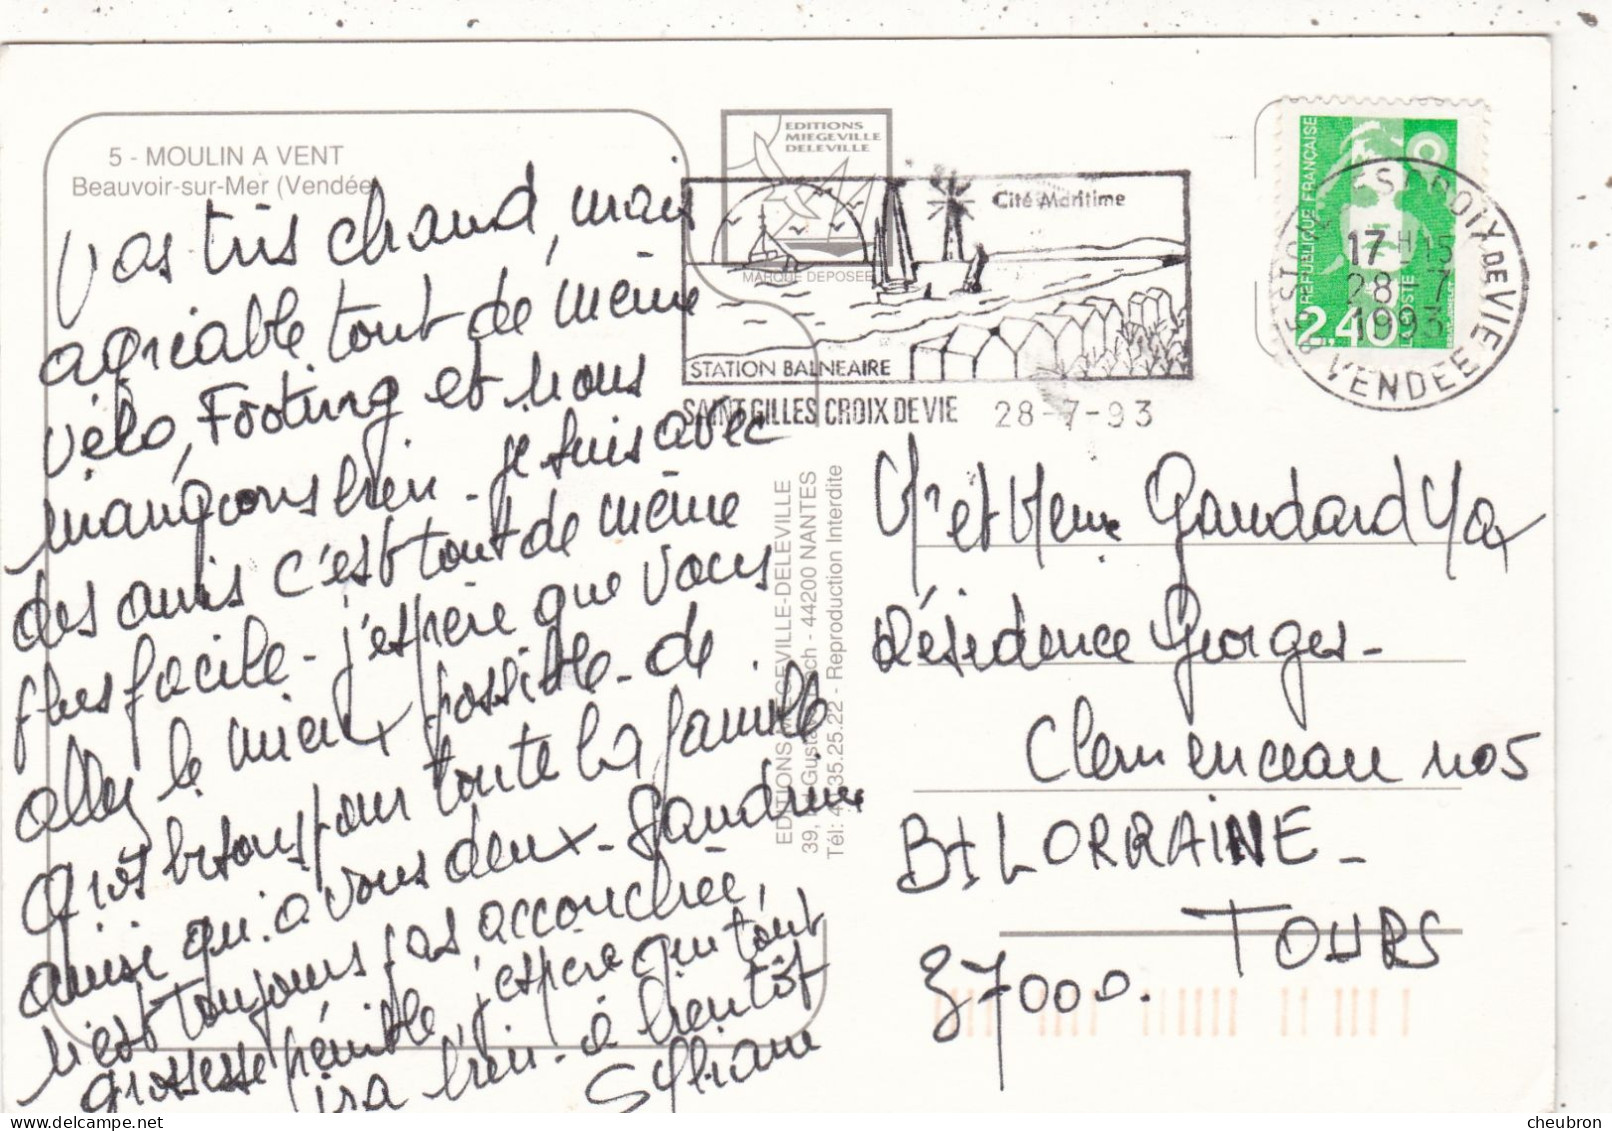 5 - MOULIN A VENT
Beauvoir-sur-Mer (Vendée)
Pas très chaud, mais
agréable tout de même
vélo, Footing et nous
mangeons bien - je suis avec
des amis c'est tout de même
plus facile - j'espère que vous
allez le mieux possible - de
Gros bisous pour toute la famille
ainsi qu'à vous deux - Sandrine
n'est toujours pas accouchée,
grossesse pénible, j'espère que tout
ira bien - à bientôt
Sylviane
EDITIONS
MIEGEVILLE
DELEVILLE
MARQUE DEPOSEE
Cité Maritime
STATION BALNEAIRE
SAINT GILLES CROIX DE VIE 28-7-93
REPUBLIQUE FRANÇAISE
2,40
LA POSTE
17 H 15
28-7
1993
VENDEE
EDITIONS MIEGEVILLE-DELEVILLE
44200 NANTES
35.25.22 - Reproduction Interdite
Mr et Mme Gaudard Max
Résidence Georges -
Clemenceau no 5
Bt LORRAINE -
TOURS
37000.
cheubron